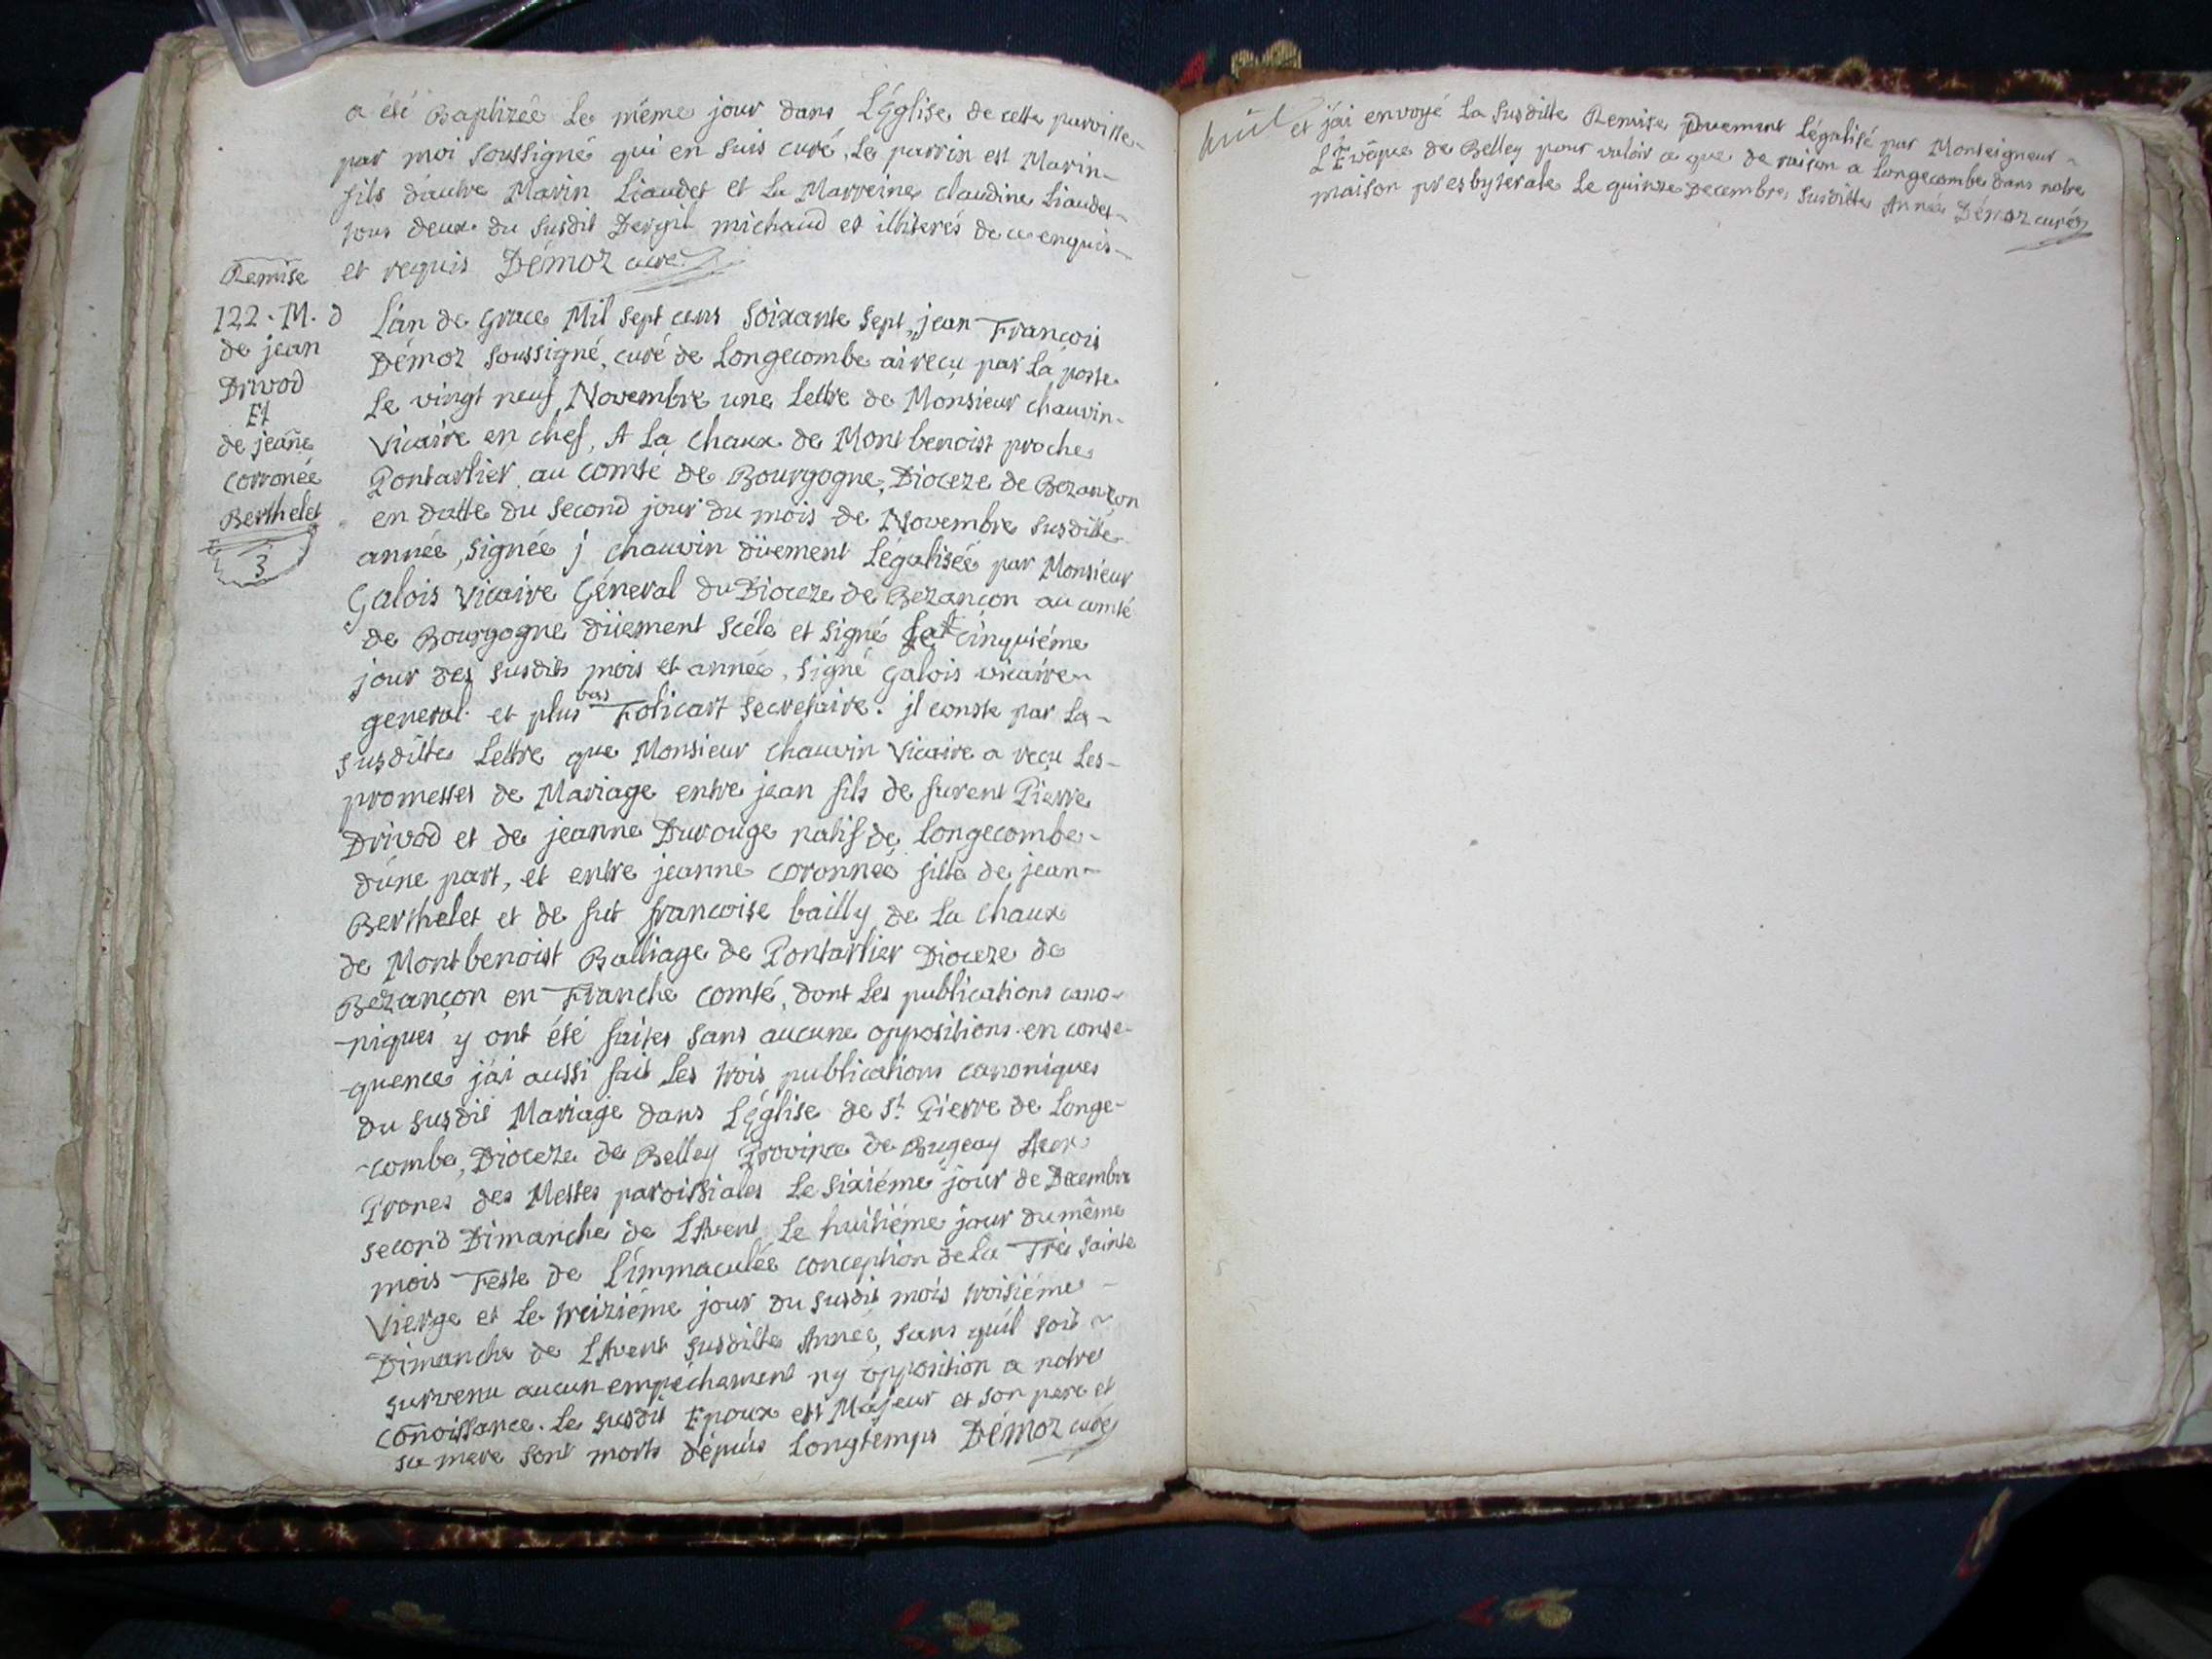 a été Baptizée Le même jour dans L'église de cette paroisse
par moi soussigné qui en suis curé, Le parrin est Marin
fils d'autre Marin Liaudet et La Marreine claudine Liaudet
tous deux du susdit michaud et illiterés de ce enquis
et requis Démoz curé
Remise
122. M. d
de jean
Drivod
Et
de jeañe
corronée
Berthelet
3
L'an de grace Mil sept cens soixante sept, jean François
Démoz soussigné, curé de Longecombe ai reçu par La poste
Le vingt neuf Novembre une Lettre de Monsieur chauvin
Vicaire en chef, A La chaux de Montbenoist proche
Pontarlier au comté de Bourgogne, Dioceze de Bezançon
en datte du second jour du mois de Novembre susditte
année, signée j chauvin düement Légalisée par Monsieur
Galois Vicaire Géneral du Dioceze de Bezançon au comté
de Bourgogne düement scélé et signé Le cinquiéme
jour des susdits mois et année, signé galois vicaire
general et plus bas Folicart secretaire. jl conste par La
susditte Lettre que Monsieur chauvin Vicaire a reçu Les
promesses de Mariage entre jean fils de furent Pierre
Drivod et de jeanne Durouge natif de Longecombe
d'une part, et entre jeanne coronnée fille de jean
Berthelet et de fut francoise bailly de La chaux
de Montbenoist Balliage de Pontarlier Dioceze de
Bezançon en Franche comté, dont Les publications cano-
-niques y ont été faites sans aucune oppositions en conse-
-quence j'ai aussi fait Les trois publications canoniques
du susdit Mariage dans L'église de St Pierre de Longe-
-combe, Dioceze de Belley Province de Bugeay
Prones des Messes paroissiales Le sixiéme jour de Decembre
second Dimanche de L'Avent Le huitiéme jour du même
mois Feste de L'immaculée conception de La Très sainte
Vierge et Le treiziéme jour du susdit mois troisiéme
Dimanche de L'Avent susditte Année, sans qu'il soit
survenu aucun empéchement ny opposition a notre
coñoissance. Le susdit Epoux est Majeur et son pere et
sa mere sont morts dépuis Longtemps Démoz curé
et j'ai envoyé La susditte Remise Duement Légalisé par Monseigneur
L'Evêque de Belley pour valoir ce que de raison a Longecombe dans notre
maison presbyterale Le quinze Decembre susditte Année Démoz curé